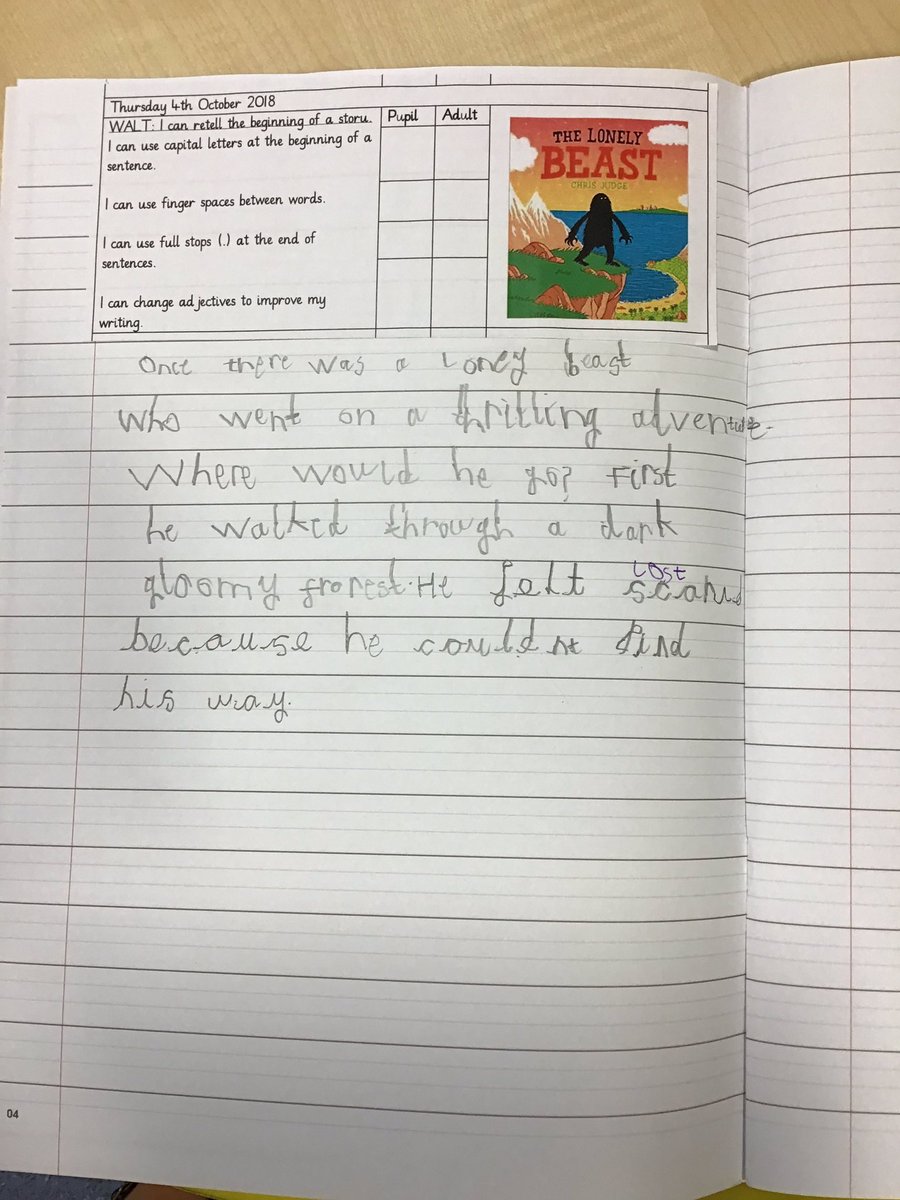 Thursday 4th October 2018
WALT: I can retell the beginning of a story.
Pupil
Adult
I can use capital letters at the beginning of a
sentence.
I can use finger spaces between words.
I can use full stops (.) at the end of
sentences.
I can change adjectives to improve my
writing.
THE LONELY
BEAST
CHRIS JUDGE
Once there was a Loney beast
who went on a thrilling adventure.
Where would he go? First
he walked through a dark
gloomy frorest. He felt scared
Lost
because he couldnt find
his way.
04